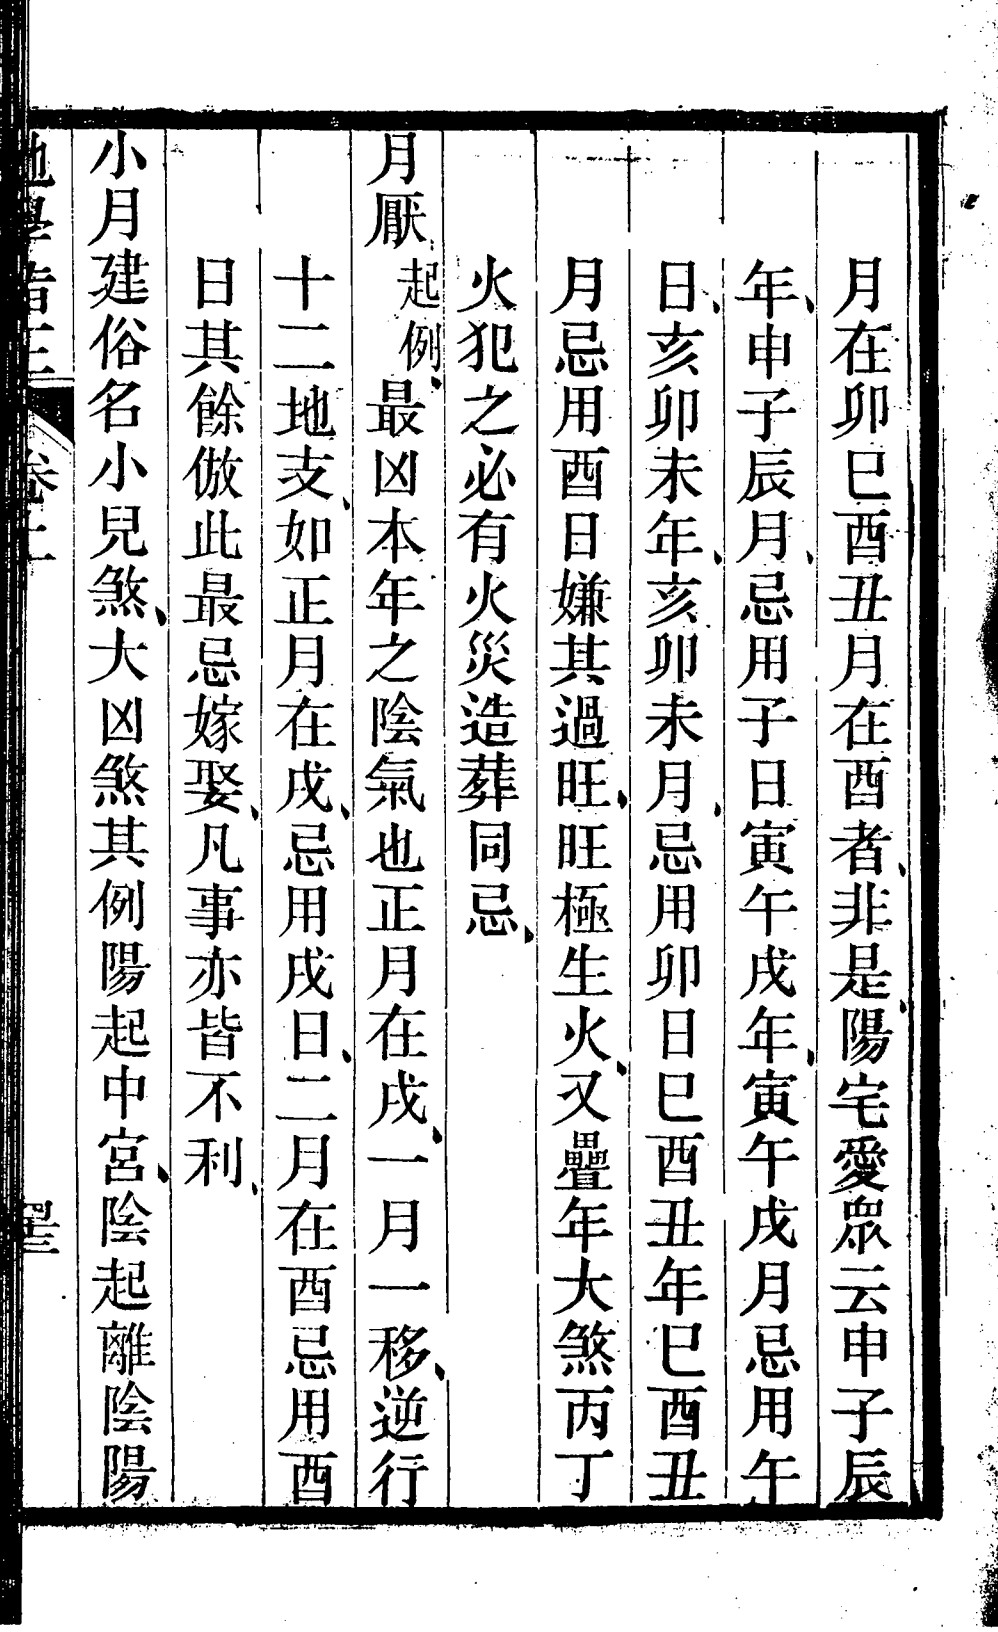 月在卯巳酉丑月在酉者非是陽宅愛眾云申子辰
年申子辰月忌用子日寅午戌年寅午戌月忌用午
日亥卯未年亥卯未月忌用卯日巳酉丑年巳酉丑
月忌用酉日嫌其過旺旺極生火又疊年大煞丙丁
火犯之必有火災造葬同忌
月厭起例最凶本年之陰氣也正月在戌一月一移逆行
十二地支如正月在戌忌用戌日二月在酉忌用酉
日其餘倣此最忌嫁娶凡事亦皆不利
小月建俗名小兒煞大凶煞其例陽起中宮陰起離陰陽